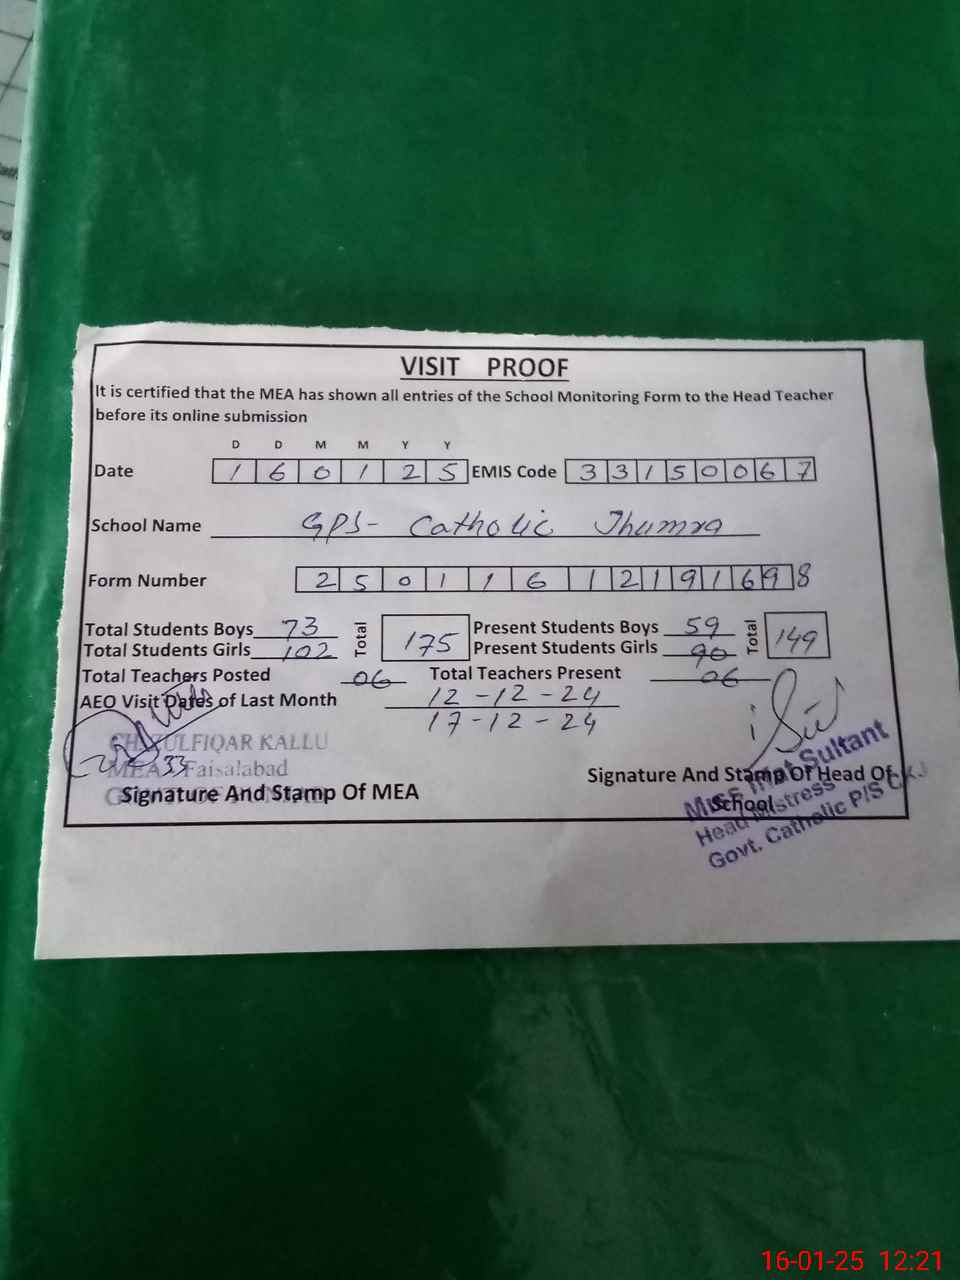 VISIT PROOF
It is certified that the MEA has shown all entries of the School Monitoring Form to the Head Teacher
before its online submission
D D M M Y Y
Date 1 6 0 1 2 5 EMIS Code 3 3 1 5 0 0 6 7
School Name GPS- Catholic Jhumra
Form Number 2 5 0 1 1 6 1 2 1 9 1 6 9 8
Total Students Boys 73 Total 175 Present Students Boys 59 Total 149
Total Students Girls 102 Present Students Girls 90
Total Teachers Posted 06 Total Teachers Present 06
AEO Visit Dates of Last Month 12-12-24
17-12-24
ULFIQAR KALLU
MEA 33 Faisalabad
Signature And Stamp Of MEA
Signature And Stamp Of Head Of
School
Miss Sultant
Head Mistress
Govt. Catholic P/S
16-01-25 12:21